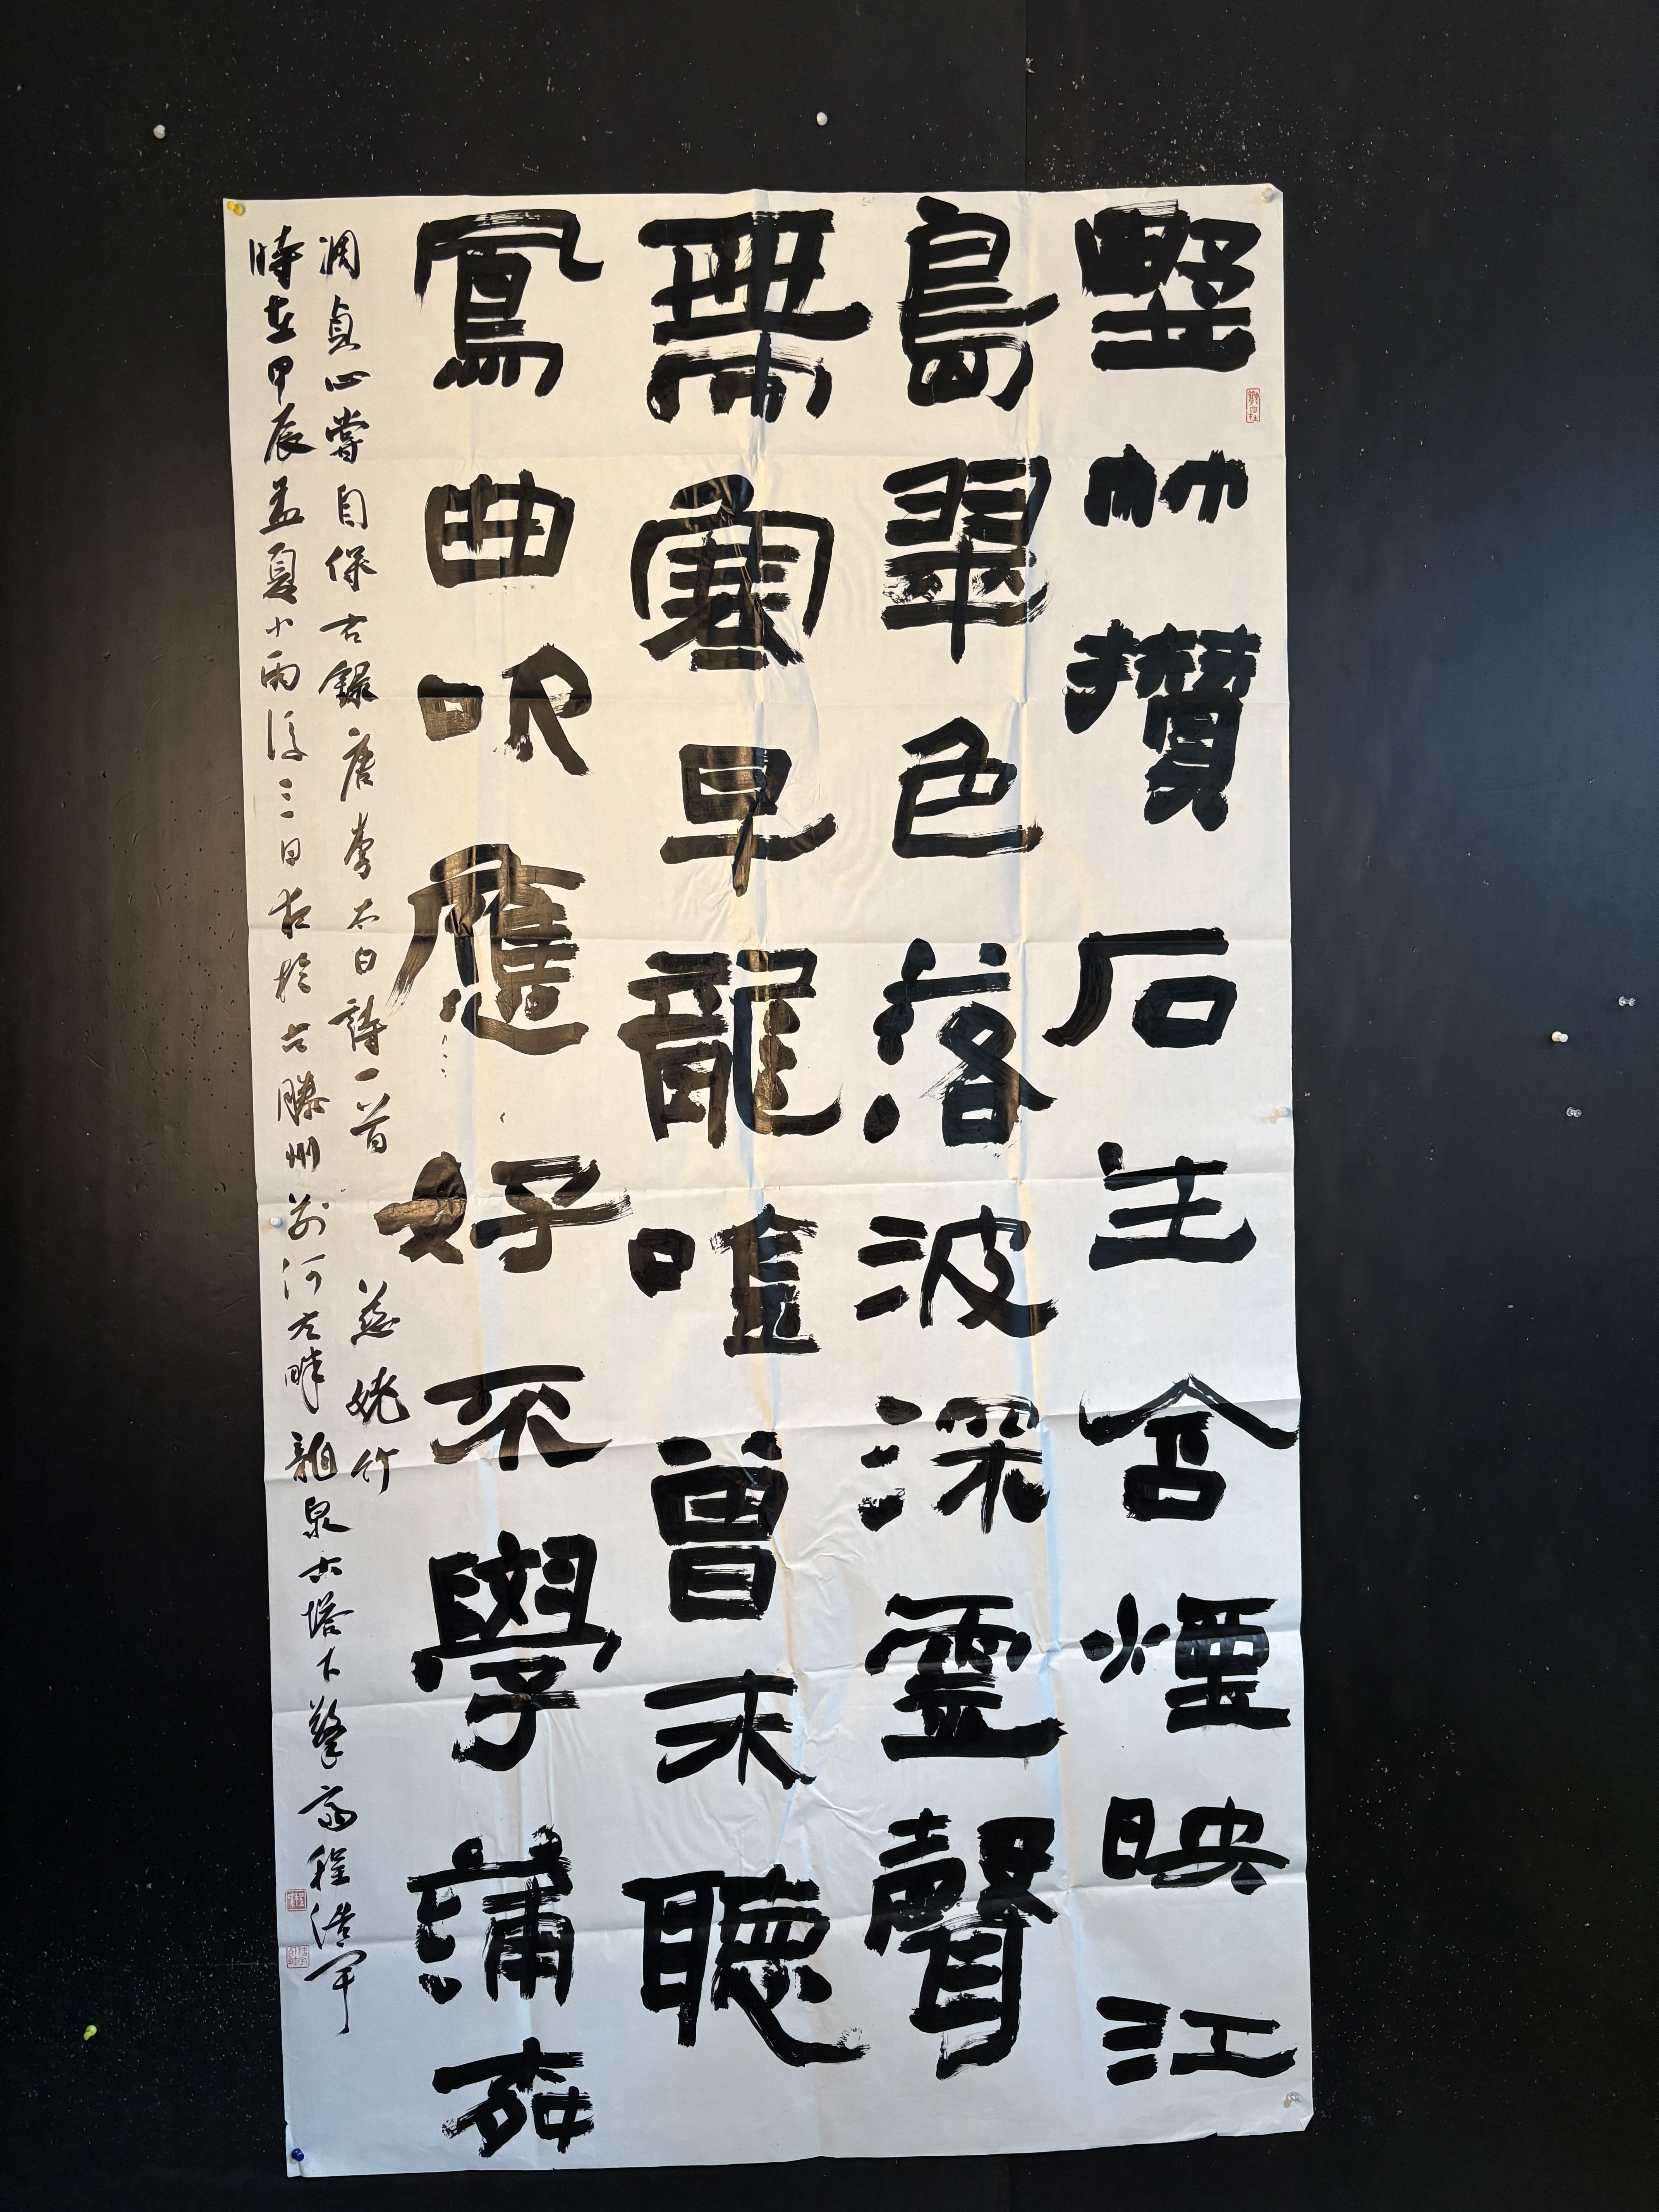 野竹攢石生含煙映江
島翠色落波深虛聲
帶寒早龍唫曾未聽
鳳曲吹應好不學蒲桺
凋貞心嘗自保右錄唐李太白詩一首 慈姥竹
時在甲辰孟夏小雨後三日於古滕州荊河左畔龍泉古塔下擎齋程浩軍